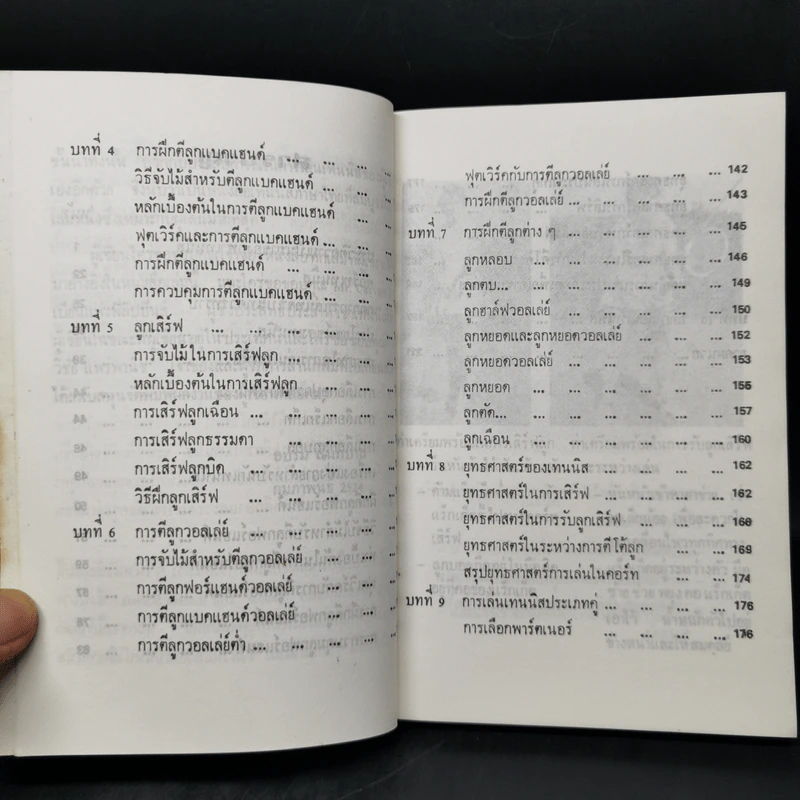 บทที่ 4 การฝึกตีลูกแบคแฮนด์ ... ... ...
วิธีจับไม้สำหรับตีลูกแบคแฮนด์ ... ...
หลักเบื้องต้นในการตีลูกแบคแฮนด์ ...
ฟุตเวิร์คและการตีลูกแบคแฮนด์ ... ...
การฝึกตีลูกแบคแฮนด์ ... ... ...
การควบคุมการตีลูกแบคแฮนด์ ... ...
บทที่ 5 ลูกเสิร์ฟ ... ... ... ... ...
การจับไม้ในการเสิร์ฟลูก ... ... ...
หลักเบื้องต้นในการเสิร์ฟลูก ... ...
การเสิร์ฟลูกเฉือน ... ... ... ...
การเสิร์ฟลูกธรรมดา ... ... ...
การเสิร์ฟลูกบิด ... ... ... ...
วิธีฝึกลูกเสิร์ฟ ... ... ... ...
บทที่ 6 การตีลูกวอลเล่ย์ ... ... ...
การจับไม้สำหรับตีลูกวอลเล่ย์ ... ...
การตีลูกฟอร์แฮนด์วอลเล่ย์ ... ...
การตีลูกแบคแฮนด์วอลเล่ย์ ... ...
การตีลูกวอลเล่ย์ต่ำ ... ... ... ...
ฟุตเวิร์คกับการตีลูกวอลเล่ย์ ... ... ... 142
การฝึกตีลูกวอลเล่ย์ ... ... ... ... 143
บทที่ 7 การฝึกตีลูกต่าง ๆ ... ... ... ... 145
ลูกหลอบ ... ... ... ... ... 146
ลูกตบ... ... ... ... ... ... 149
ลูกฮาล์ฟวอลเล่ย์ ... ... ... ... 150
ลูกหยอดและลูกหยอดวอลเล่ย์ ... ... ... 152
ลูกหยอดวอลเล่ย์ ... ... ... ... 153
ลูกหยอด ... ... ... ... ... 155
ลูกตัด... ... ... ... ... ... 157
ลูกเฉือน ... ... ... ... ... 160
บทที่ 8 ยุทธศาสตร์ของเทนนิส ... ... ... 162
ยุทธศาสตร์ในการเสิร์ฟ ... ... ... 162
ยุทธศาสตร์ในการรับลูกเสิร์ฟ ... ... ... 168
ยุทธศาสตร์ในระหว่างการตีโต้ลูก ... ... 169
สรุปยุทธศาสตร์การเล่นในคอร์ท ... ... 174
บทที่ 9 การเล่นเทนนิสประเภทคู่ ... ... ... 176
การเลือกพาร์ตเนอร์ ... ... ... ... 176